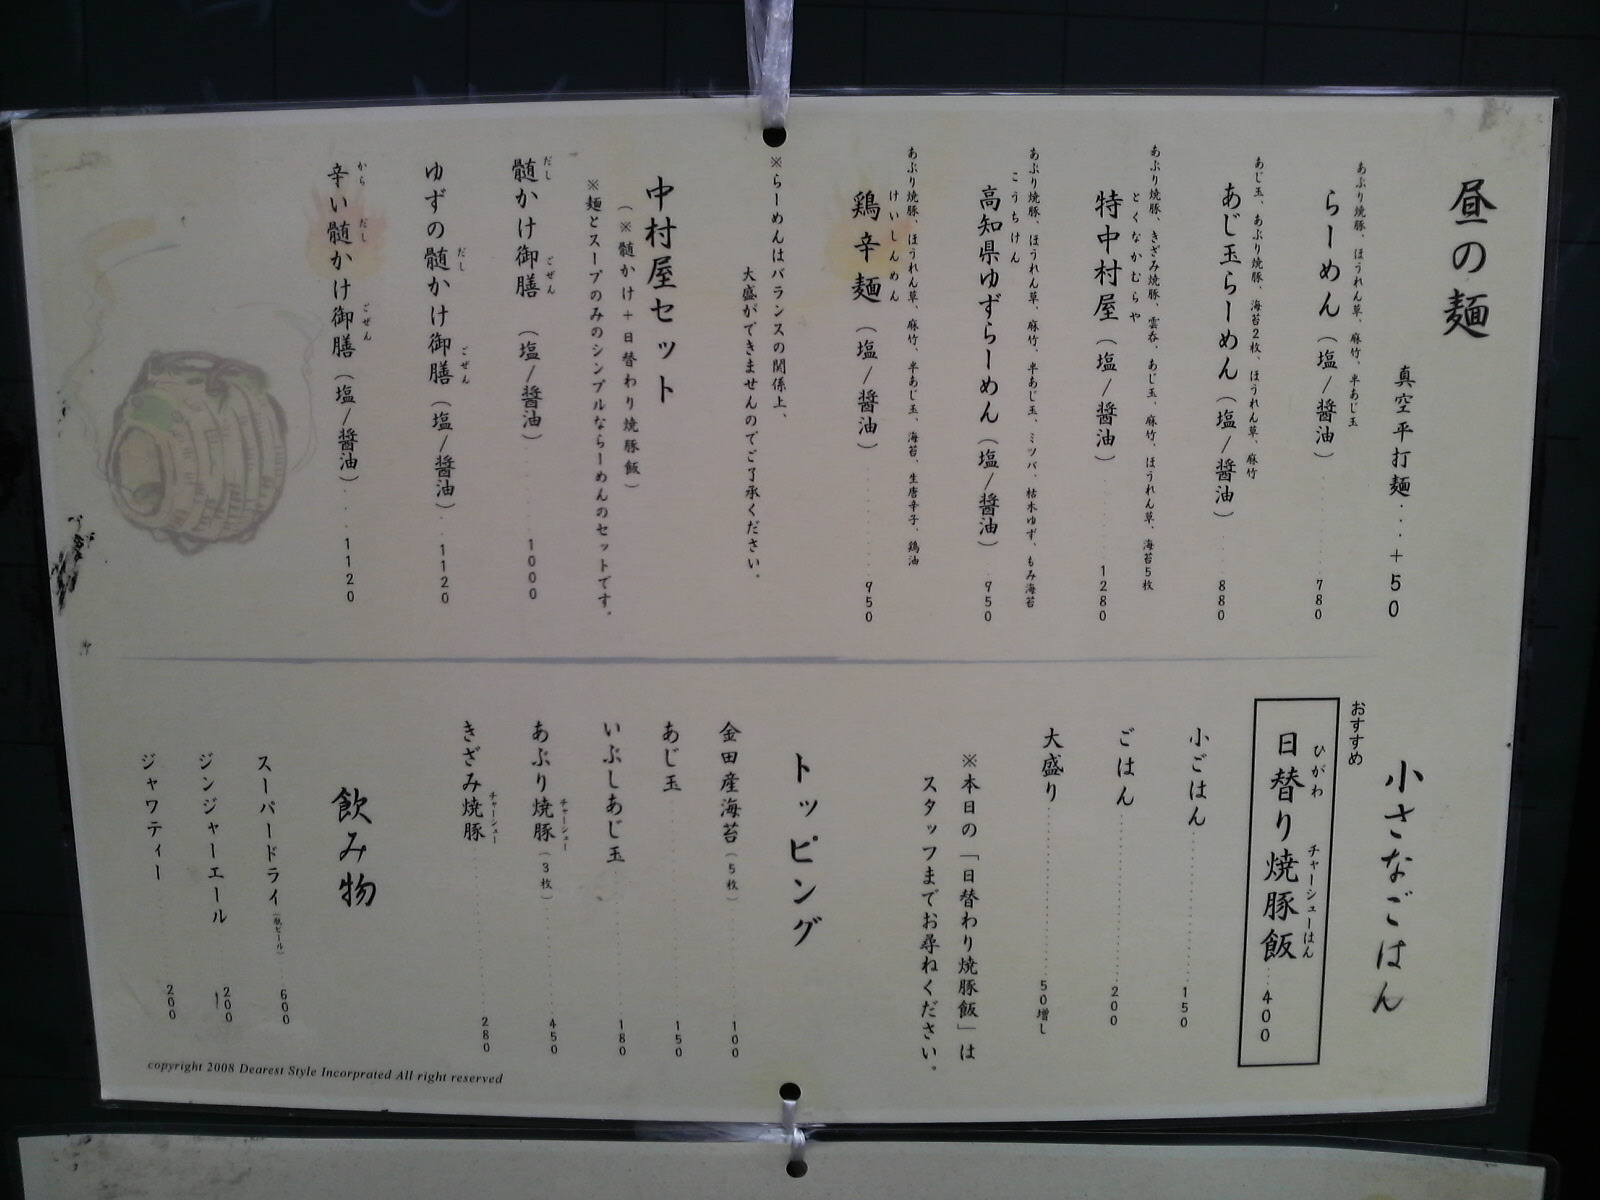 昼の麺
真空平打麺・・・+50
あぶり焼豚、ほうれん草、麻竹、半あじ玉
らーめん（塩/醤油）・・・780
あじ玉、あぶり焼豚、海苔2枚、ほうれん草、麻竹
あじ玉らーめん（塩/醤油）・・・880
あぶり焼豚、きざみ焼豚、雲呑、あじ玉、麻竹、ほうれん草、海苔5枚
とくなかむらや
特中村屋（塩/醤油）・・・1280
あぶり焼豚、ほうれん草、麻竹、半あじ玉、ミツバ、枯木ゆず、もみ海苔
こうちけん
高知県ゆずらーめん（塩/醤油）・・・950
あぶり焼豚、ほうれん草、麻竹、半あじ玉、海苔、生唐辛子、鶏油
けいしんめん
鶏辛麺（塩/醤油）・・・950
※らーめんはバランスの関係上、
大盛ができませんのでご了承ください。
中村屋セット
（※髄かけ+日替わり焼豚飯）
※麺とスープのみのシンプルならーめんのセットです。
だし ごぜん
髄かけ御膳（塩/醤油）・・・1000
だし ごぜん
ゆずの髄かけ御膳（塩/醤油）・・・1120
から だし ごぜん
辛い髄かけ御膳（塩/醤油）・・・1120
小さなごはん
おすすめ
ひがわ チャーシューはん
日替り焼豚飯・・・400
小ごはん・・・150
ごはん・・・200
大盛り・・・50増し
※本日の「日替わり焼豚飯」は
スタッフまでお尋ねください。
トッピング
金田産海苔（5枚）・・・100
あじ玉・・・150
いぶしあじ玉・・・180
チャーシュー
あぶり焼豚（3枚）・・・450
チャーシュー
きざみ焼豚・・・280
飲み物
スーパードライ（瓶ビール）・・・600
ジンジャーエール・・・200
ジャワティー・・・200
copyright 2008 Dearest Style Incorprated All right reserved